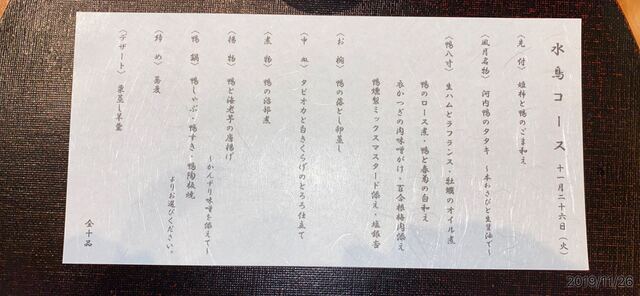 水鳥コース 十一月二十六日(火)
(先付) 姫柿と鴨のごま和え
(風月名物) 河内鴨のタタキ ~本わさびと生醤油で~
(鴨八寸) 生ハムとラフランス・牡蠣のオイル煮
鴨のロース煮・鴨と春菊の白和え
衣かつぎの肉味噌がけ・百合根梅肉添え
鴨燻製ミックスマスタード添え・塩銀杏
(お椀) 鴨の落とし卵蒸し
(中皿) タピオカと白きくらげのとろろ仕立て
(煮物) 鴨の治部煮
(揚物) 鴨と海老芋の唐揚げ
~かんずり味噌を添えて~
(鴨鍋) 鴨しゃぶ・鴨すき・鴨陶板焼
よりお選びください。
(締め) 蕎麦
(デザート) 栗蒸し羊羹
全十品
2019/11/26